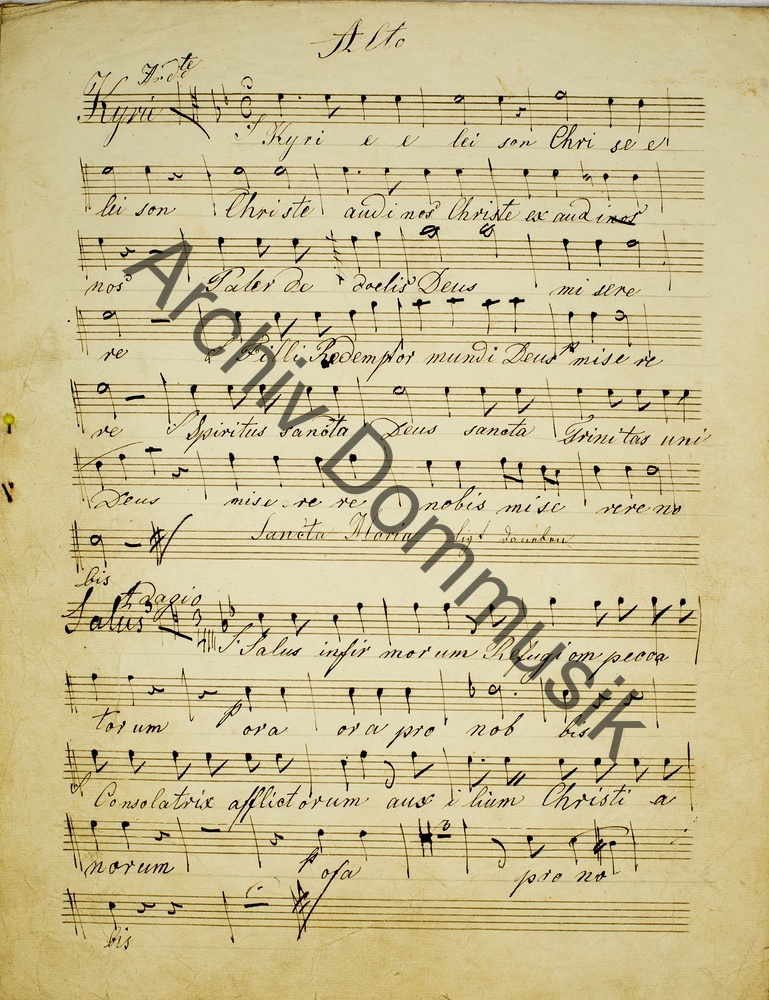 Alto
Andte
Kyrie
f Kyri e e lei son Chri se e
lei son Christe audi nos Christe ex aud inos
nos Pater de doelis Deus mi sere
re f Filli Redemptor mundi Deus p mise re
re f Spiritus sancta Deus sancta Trini tas uni
Deus mise re re nobis mise rere no
Sancta Maria
bis
Adagio
Salus
f Salus infir morum Refugi om pecca
torum p ora ora pro nob bis
f Consolatrix afflictorum aux i lium Christi a
norum p ofa pro no
bis
Archiv Dommusik